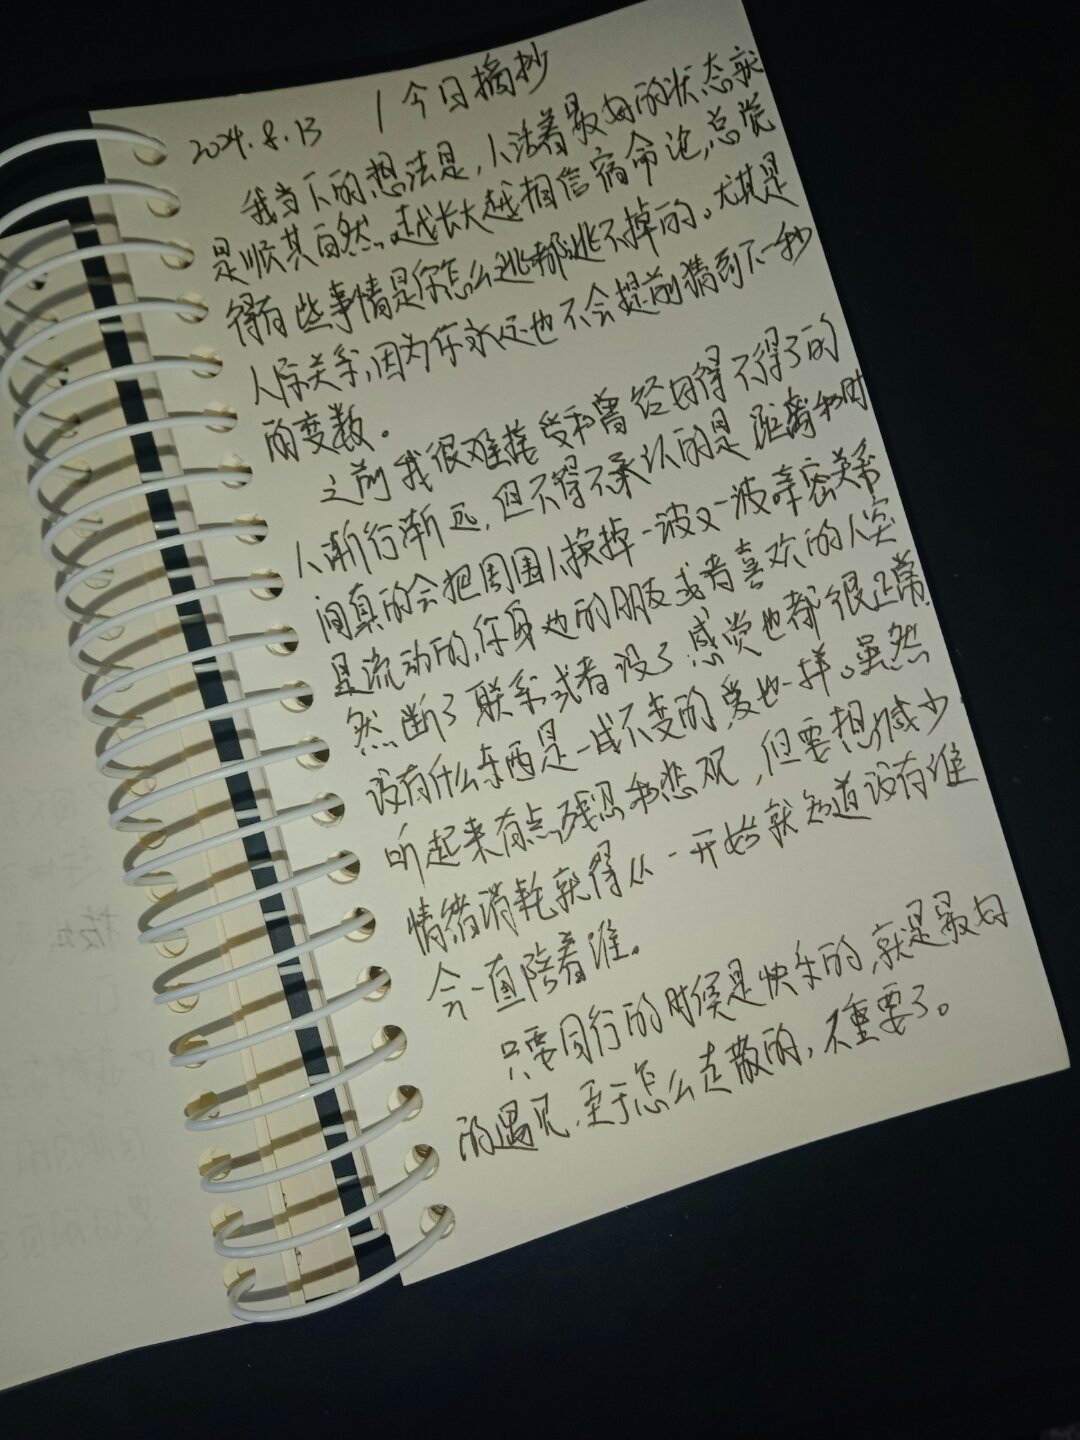 2024.8.13 | 今日摘抄
我当下的想法是，人活着最好的状态就
是顺其自然，越长大越相信宿命论，总觉
得有些事情是你怎么逃都逃不掉的。尤其是
人际关系，因为你永远也不会提前猜到下一秒
的变数。
之前我很难接受和曾经好得不得了的
人渐行渐远，但不得不承认的是距离和时
间真的会把周围人换掉一波又一波亲密关系
是流动的，你身边的朋友或者喜欢的人突
然断了联系或者没了感觉也都很正常，
没有什么东西是一成不变的爱也一样。虽然
听起来有点残忍和悲观，但要想减少
情绪消耗就得从一开始就知道没有谁
会一直陪着谁。
只要同行的时候是快乐的，就是最好
的遇见，至于怎么走散的，不重要了。